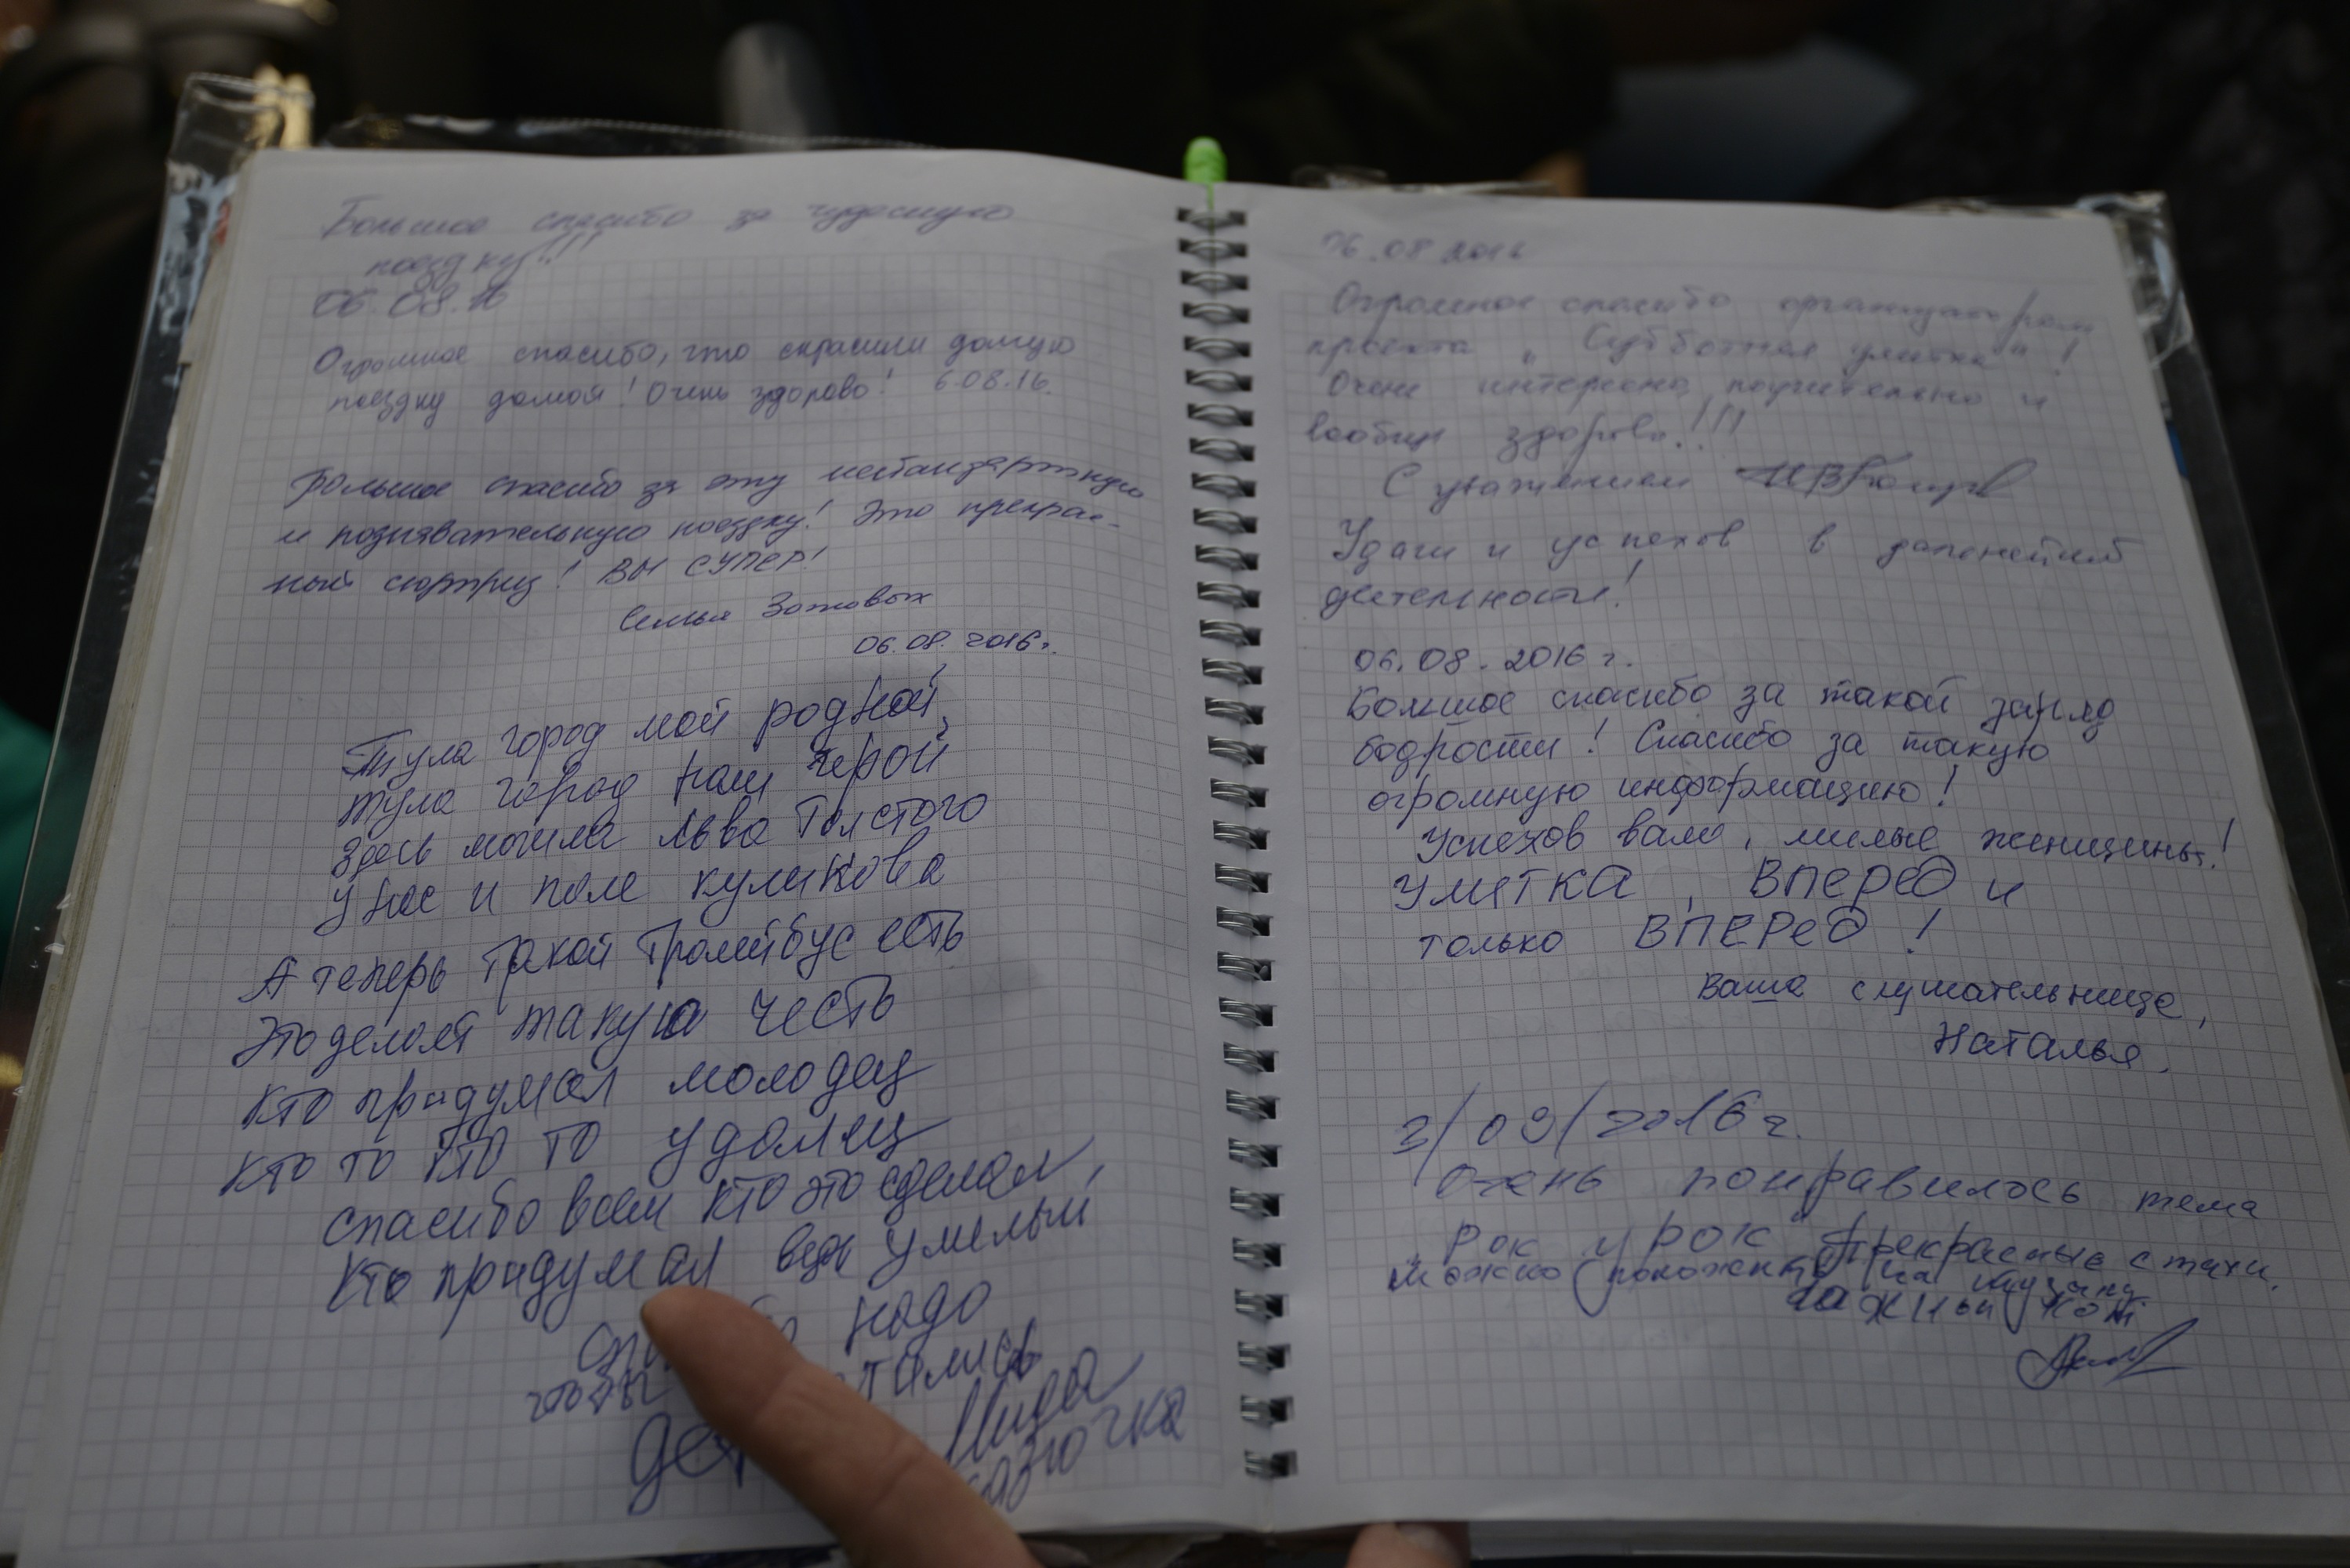 Большое спасибо за чудесную
поездку!!!
06.08.16
Огромное спасибо, что скрасили долгую
поездку домой! Очень здорово! 6.08.16.
Большое спасибо за эту нестандартную
и познавательную поездку! Это прекрас-
ный сюрприз! ВЫ СУПЕР!
Семья Зотовых
06.08.2016г.
Тула город мой родной,
Тула город наш герой
Здесь могила Льва Толстого
У нас и поле куликова
А теперь такой Тролейбус есть
Это делает такую честь
Кто придумал молодец
Кто то кто то удалец
спасибо всем кто это сделал,
Кто придумал ведь умелый
надо
чтобы
Лида
06.08.2016
Огромное спасибо организаторам
проекта „Субботняя улитка"!
Очень интересно, поучительно и
вообще здорово!!!
С уважением
Удачи и успехов в дальнейшей
деятельности!
06.08.2016 г.
Большое спасибо за такой заряд
бодрости! Спасибо за такую
огромную информацию!
Успехов вам, милые женщины!
Улитка, Вперед и
только ВПЕРЕД!
Ваша слушательница,
Наталья.
3/09/2016г.
Очень понравилось тема
„Рок урок" Прекрасные стихи.
можно положить на музыку